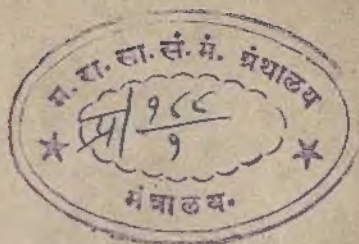 म. रा. सा. सं. मं. ग्रंथालय
प्र/ १८८
१
मंत्रालय.